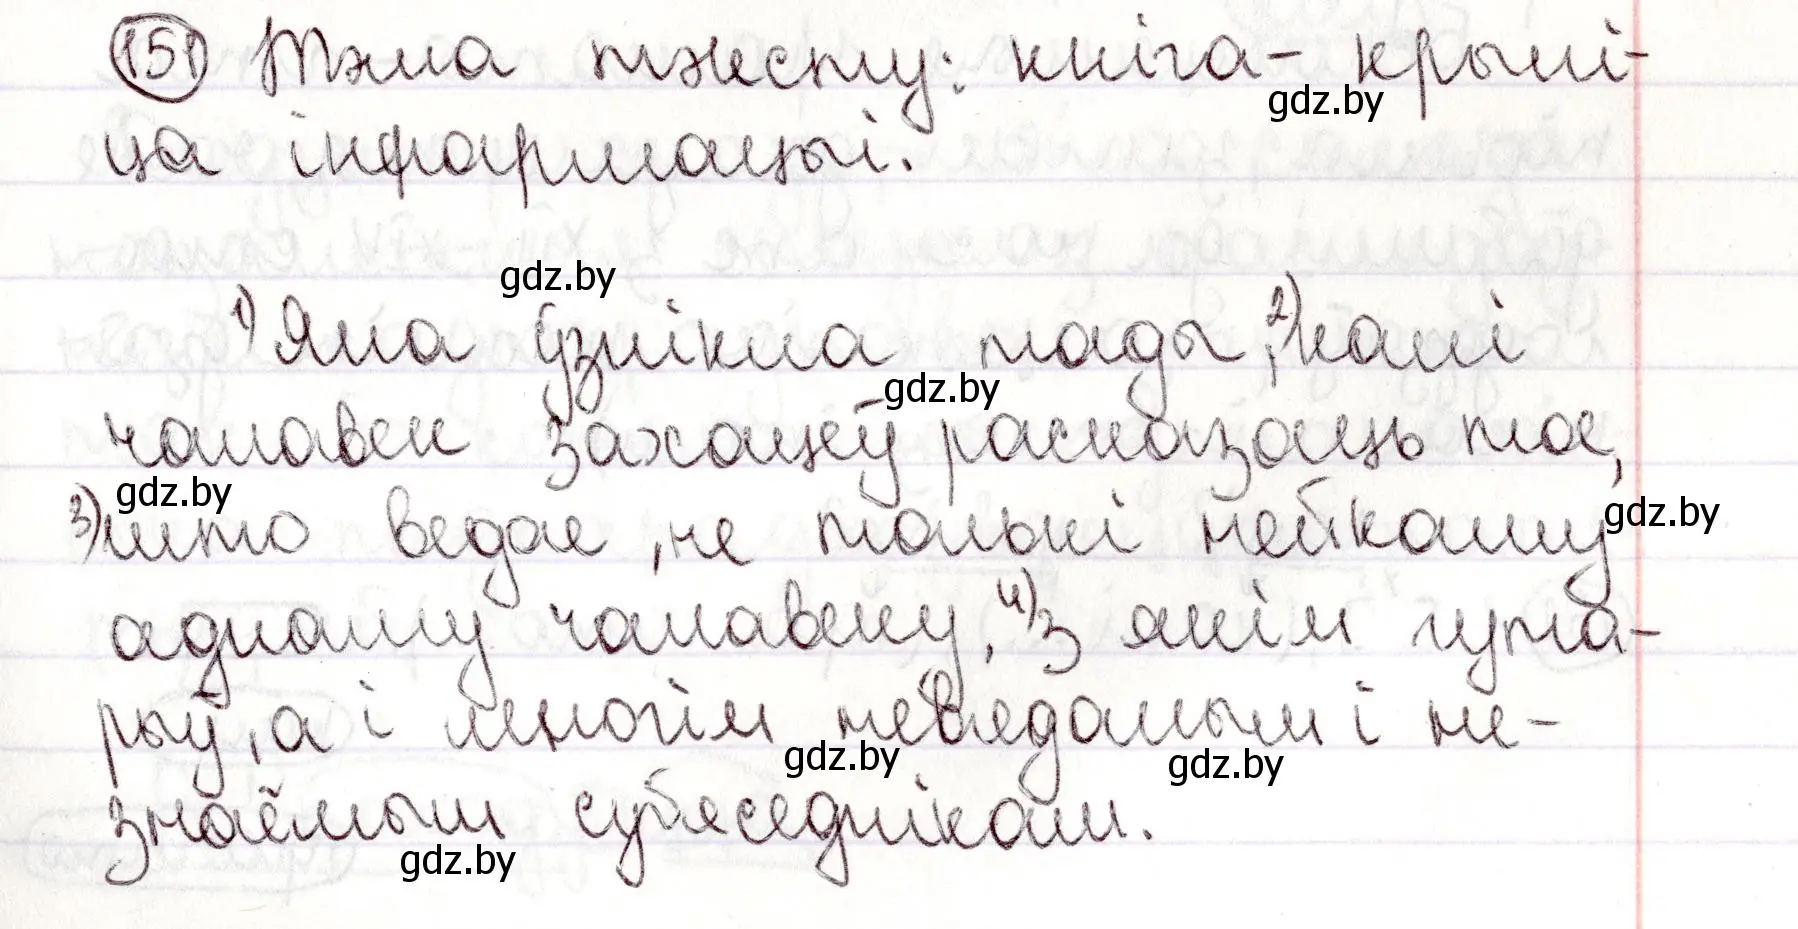 151 Тэма тэксту: кніга - крыні-
gdz.by
ца інфармацыі.
gdz.by
1) Яна ўзнікла тады, 2) калі
gdz.by
чалавек захацеў расказаць тое,
gdz.by
3) што ведае, не толькі нейкаму
gdz.by
аднаму чалавеку, 4) з якім гута-
рыў, а і многім невядомым і не-
gdz.by gdz.by
знаёмым субяседнікам.
gdz.by